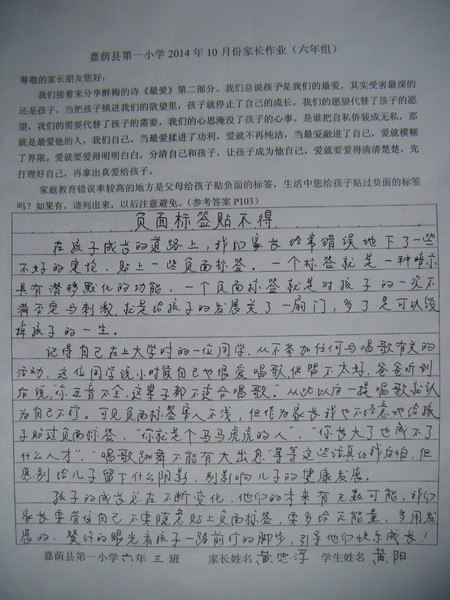 嘉荫县第一小学2014年10月份家长作业（六年组）
尊敬的家长朋友您好：
我们接着来分享醉梅的诗《最爱》第二部分。我们总说孩子是我们的最爱，其实受害最深的
还是孩子。当把孩子锁进我们的欲望里，孩子就停止了自己的成长，我们的愿望代替了孩子的愿
望，我们的需要代替了孩子的需要，我们的心思淹没了孩子的心事，是谁把自私伪装成无私，那
就是最爱他的人，我们自己，当最爱揉进了功利，爱就不再纯洁，当最爱融进了自己，爱就模糊
了界限。爱就要爱得明明白白，分清自己和孩子，让孩子成为他自己，爱就要爱得清清楚楚，先
打理好自己，再拿出真爱给孩子。
家庭教育错误率较高的地方是父母给孩子贴负面的标签，生活中您给孩子贴过负面的标签
吗？如果有，请列出来，以后注意避免。（参考答案P103）
负面标签贴不得
在孩子成长的道路上，我们家长经常错误地下了一些
不好的定论，贴上一些负面标签。一个标签就是一种暗示
具有潜移默化的功能，一个负面标签就是对孩子的一次不
满否定与刺激，就是给孩子的发展关了一扇门，多了是可以毁
掉孩子的一生。
记得自己在上大学时的一位同学，从不参加任何与唱歌有关的
活动，这位同学说小时候自己也很爱唱歌，但唱不太好，爸爸听到
后说"你五音不全，这辈子都不适合唱歌"。从此以后一提唱歌就认
为自己不行。可见负面标签害人不浅，但作为家长我也不经意地给孩
子贴过负面标签，"你就是个马马虎虎的人"，"你长大了也成不了
什么人才"，"唱歌跳舞不能有大出息"等等这些话真让我后怕，但
愿别给儿子留下什么阴影，别影响儿子的健康发展。
孩子的成长总在不断变化，他们的未来有无数可能，我们
家长要管住自己不要随意贴上负面标签，要多给正能量，多用发
展的、赞许的眼光看孩子一路前行的脚步，引导他们快乐成长！
嘉荫县第一小学六年三班 家长姓名 黄忠浮 学生姓名 黄阳